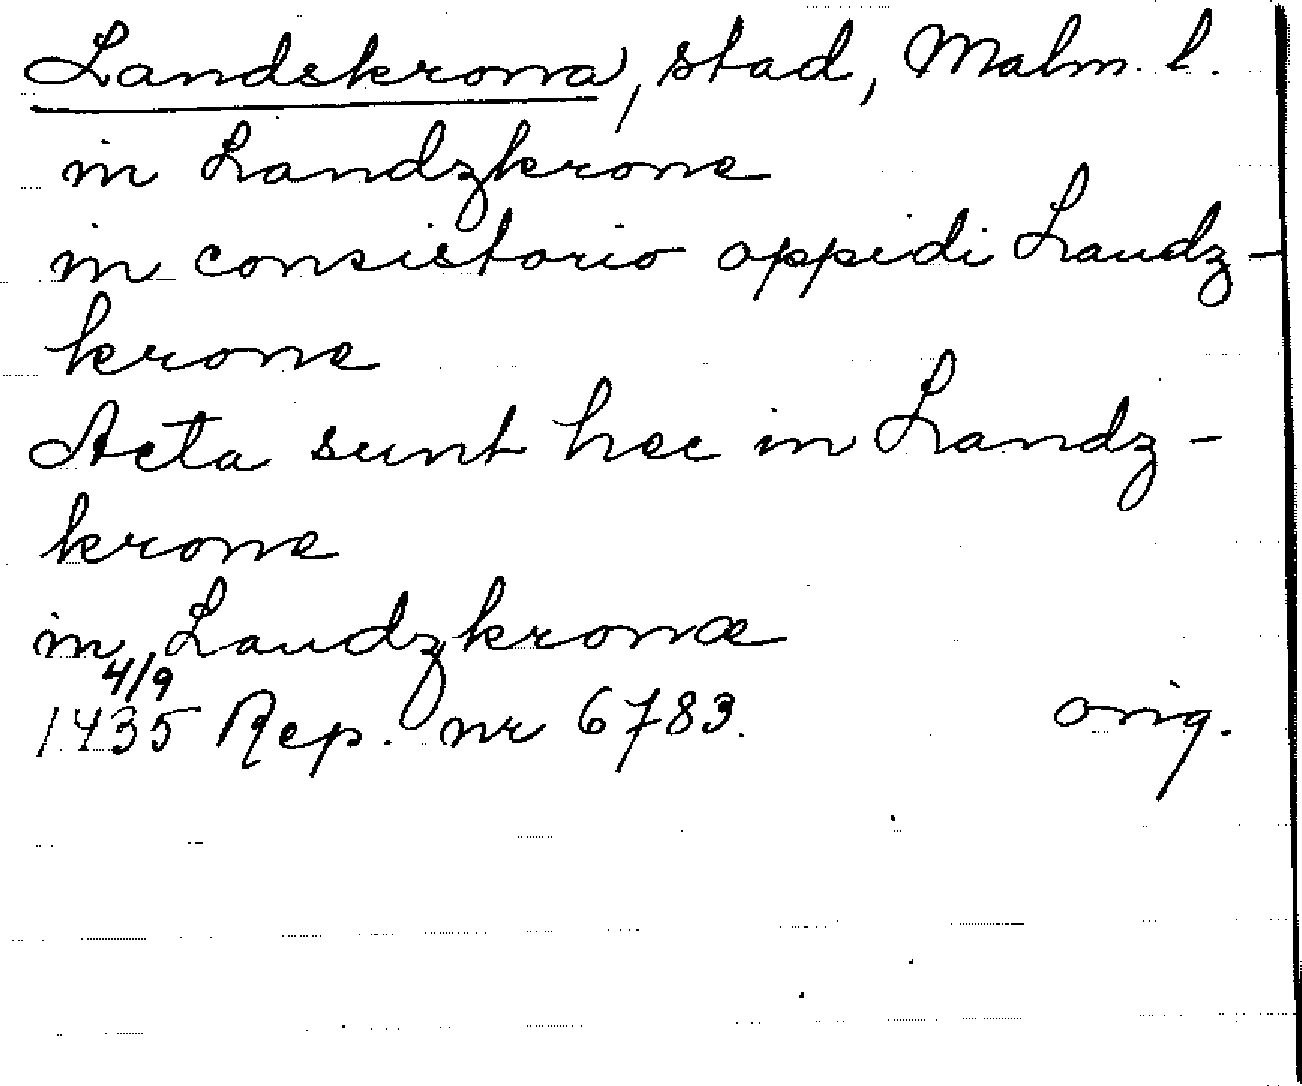 Landskrona, stad, Malm. l.
in Landzkrone
in consistorio oppidi Landz-
krone
Acta sunt hec in Landz-
krone
in Landzkronæ
4/9
1435 Rep. nr 6783. orig.